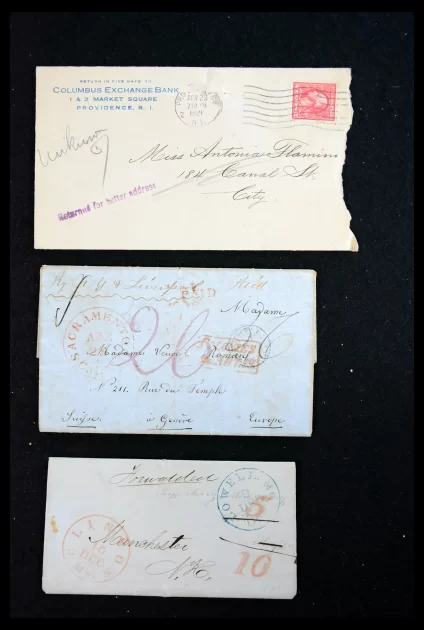 RETURN IN FIVE DAYS TO
COLUMBUS EXCHANGE BANK
1 & 2 MARKET SQUARE
PROVIDENCE, R. I.
APR 23
1921
R.I.
Unknown
Miss Antonia Flamini
184 Canal St.
City.
Returned for better address
By N Y & Liverpool
Paid
PAID
Madame
SACRAMENTO
26
Madame Veuve Romans
No 211. Rue du Temple
Suisse
à Genève
Europe
Forwarded
LOWELL Ms.
5
10
DEC
Ms
Manchester
N.H.
10